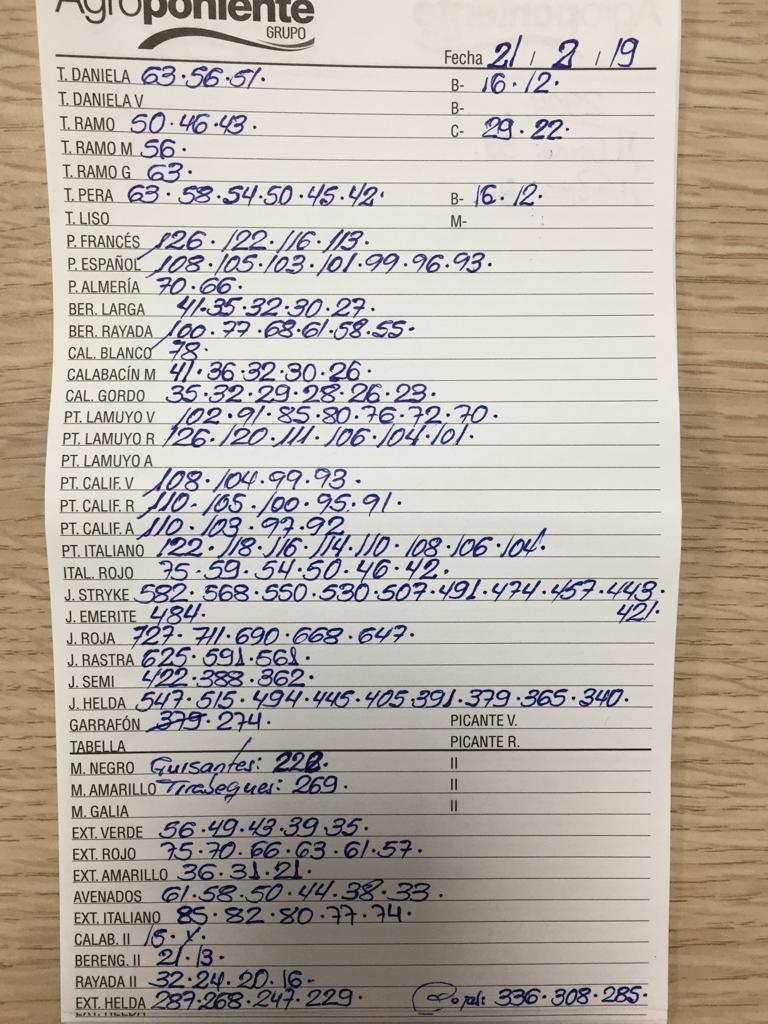 Agroponiente
GRUPO
Fecha 21 / 2 / 19
T. DANELA 63·56·51· B- 16·12·
T. DANELA V B-
T. RAMO 50·46·43· C- 29·22·
T. RAMO M 56·
T. RAMO G 63·
T. PERA 63·58·54·50·45·42· B- 16·12·
T. LISO M-
P. FRANCÉS 126·122·116·113·
P. ESPAÑOL 108·105·103·101·99·96·93·
P. ALMERÍA 70·66·
BER. LARGA 41·35·32·30·27·
BER. RAYADA 100·77·68·61·58·55·
CAL. BLANCO 78·
CALABACÍN M 41·36·32·30·26·
CAL. GORDO 35·32·29·28·26·23·
PT. LAMUYO V 102·91·85·80·76·72·70·
PT. LAMUYO R 126·120·111·106·104·101·
PT. LAMUYO A
PT. CALIF. V 108·104·99·93·
PT. CALIF. R 110·105·100·95·91·
PT. CALIF. A 110·103·97·92
PT. ITALIANO 122·118·116·114·110·108·106·104·
ITAL. ROJO 75·59·54·50·46·42·
J. STRYKE 582·568·550·530·507·491·474·457·443·
421·
J. EMERITE 484·
J. ROJA 727·711·690·668·647·
J. RASTRA 625·591·561·
J. SEMI 422·388·362·
J. HELDA 547·515·494·445·405·391·379·365·340·
GARRAFÓN 379·274· PICANTE V.
TABELLA PICANTE R.
M. NEGRO Guisantes: 228· II
M. AMARILLO Tirabeques: 269· II
M. GALIA II
EXT. VERDE 56·49·43·39·35·
EXT. ROJO 75·70·66·63·61·57·
EXT. AMARILLO 36·31·21·
AVENADOS 61·58·50·44·38·33·
EXT. ITALIANO 85·82·80·77·74·
CALAB. II 15·
BERENG. II 21·13·
RAYADA II 32·24·20·16·
EXT. HELDA 287·268·247·229· 336·308·285·